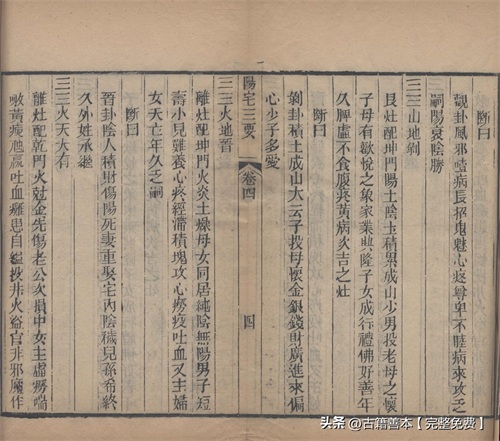 斷曰
觀卦鳳邪噎病長招鬼魅心疼尊卑不睦病來攻乏
嗣陽衰陰勝
三三山地剝
艮灶配坤門陽土陰土積累成山少男投老母之懷
子母有歡悅之象家業興隆子女成行禮佛好善年
久脾虛不食腹疼黃病次吉之灶
斷曰
剝卦積土成山大云子投母懷金銀錢財廣進來偏
心少子多愛
陽宅三要 卷四 四
三三火地晉
離灶配坤門火炎土燥母女同居純陰無陽男子短
壽小兒難養心疼經滯積塊攻心癆疫吐血又主婦
女夭亡年久乏嗣
斷曰
晉卦陰人積財傷陽死妻重娶宅內陰穢兒孫希終
久外姓承繼
三三火天大有
離灶配乾門火尅金先傷老公次損中女主虛癆喘
嗽黃瘦尪羸吐血癱患自縊投井火盜官非邪魔作
頭条 @古籍善本【完整免费】